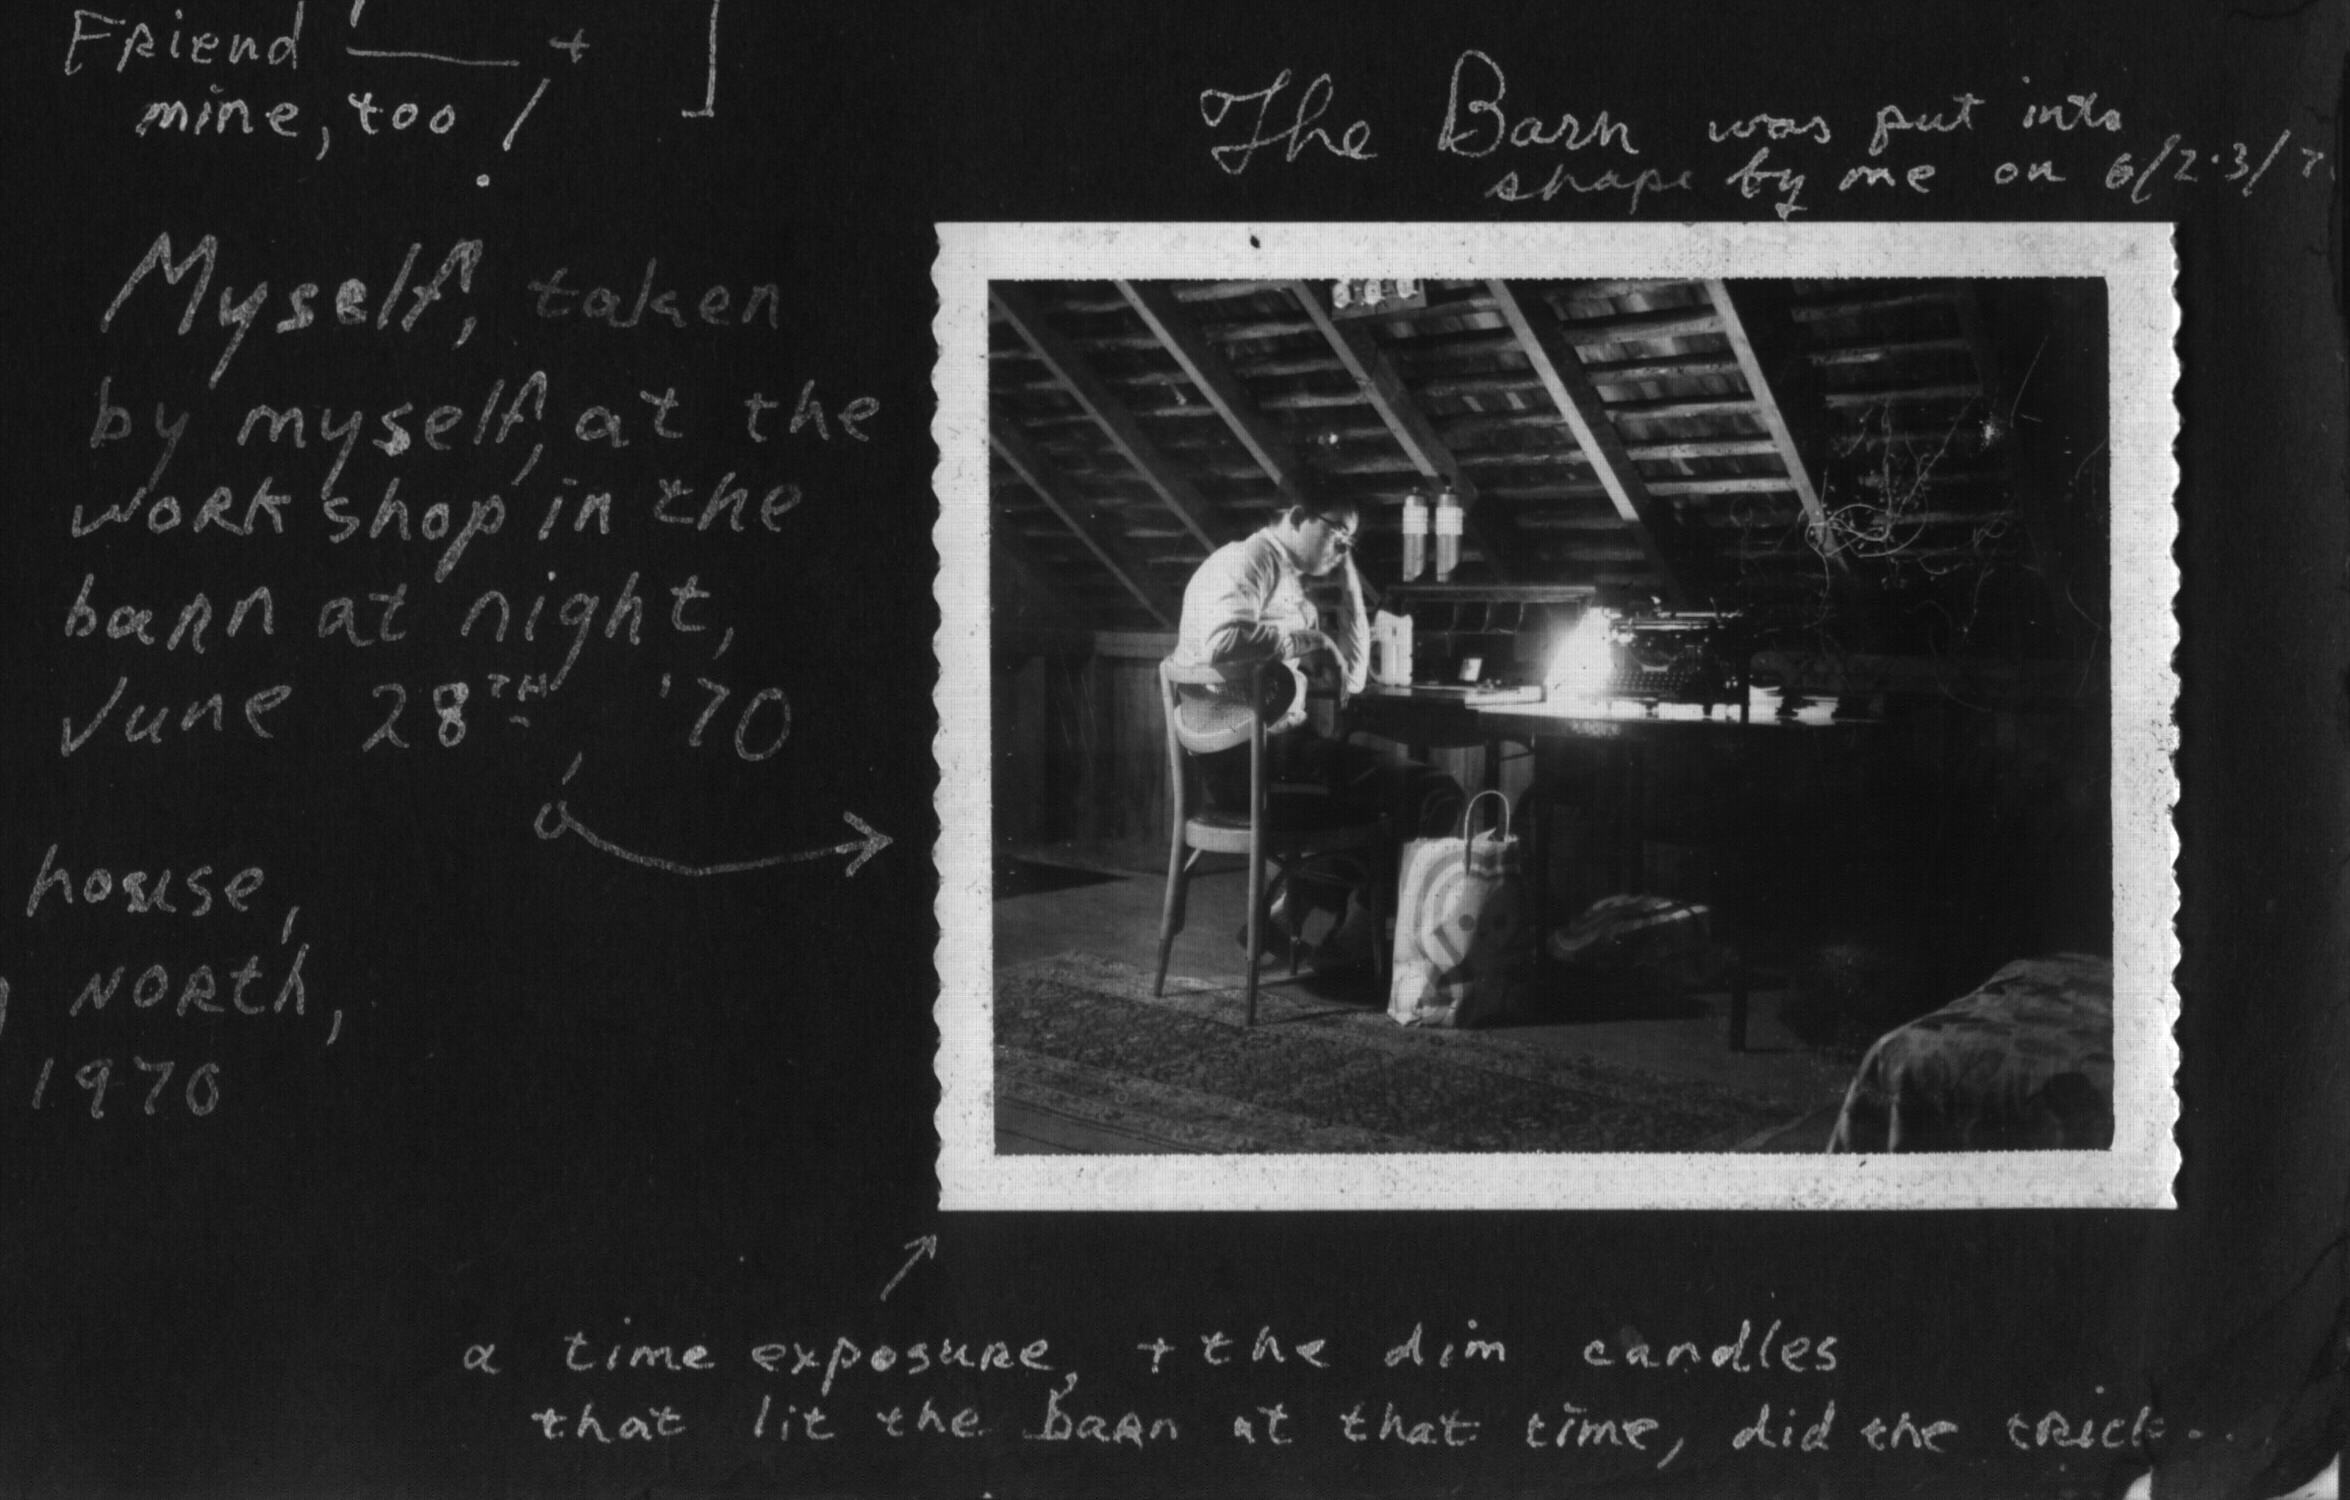 Friend ____ +
mine, too!
The Barn was put into
shape by me on 6/2-3/7
Myself, taken
by myself, at the
workshop in the
barn at night,
June 28TH, '70
house,
North,
1970
a time exposure, + the dim candles
that lit the barn at that time, did the trick...